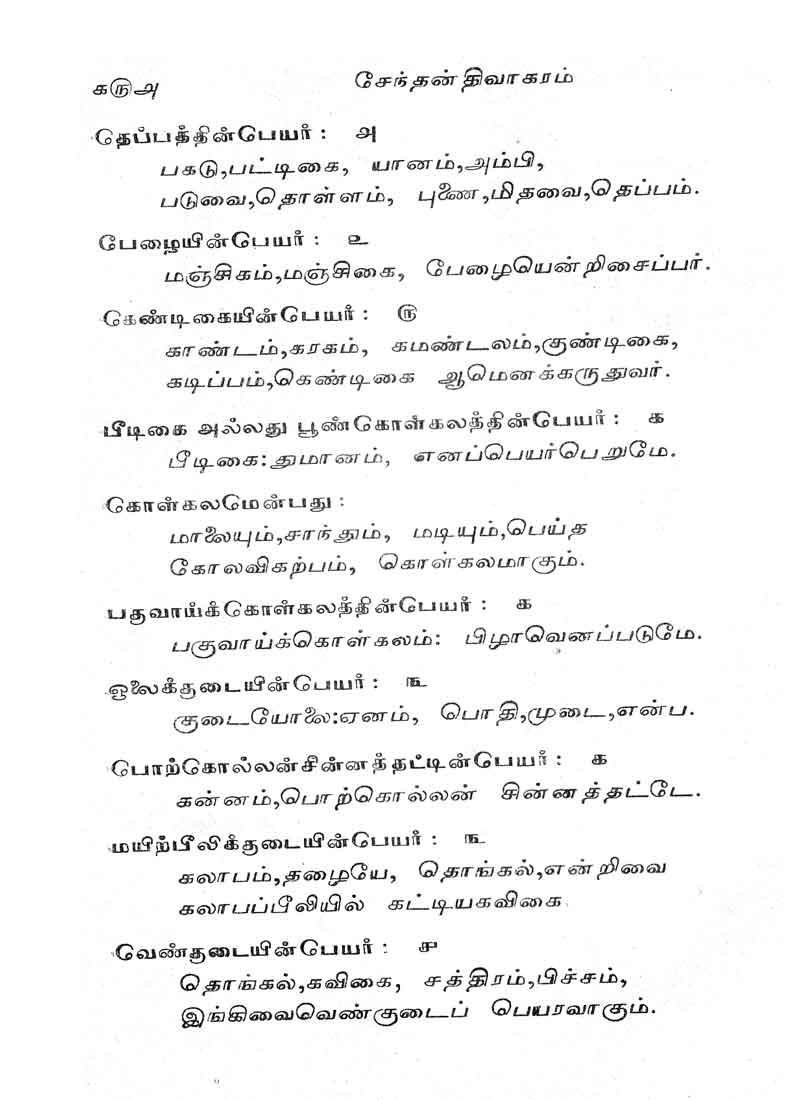 க௫அ
சேந்தன் திவாகரம்
தெப்பத்தின்பேயர் : அ
பகடு,பட்டிகை, யானம்,அம்பி,
படுவை,தொள்ளம், புணை,மிதவை,தெப்பம்.
பேழையின்பேயர் : உ
மஞ்சிகம்,மஞ்சிகை, பேழையென்றிசைப்பர்.
கேண்டிகையின்பேயர் : ௫
காண்டம்,கரகம், கமண்டலம்,குண்டிகை,
கடிப்பம்,கெண்டிகை ஆமெனக்கருதுவர்.
பீடிகை அல்லது பூண்கோள்கலத்தின்பேயர் : க
பீடிகை:துமானம், எனப்பெயர்பெறுமே.
கோள்கலமேன்பது :
மாலையும்,சாந்தும், மடியும்,பெய்த
கோலவிகற்பம், கொள்கலமாகும்.
பதவாய்க்கோள்கலத்தின்பேயர் : க
பகுவாய்க்கொள்கலம்: பிழாவெனப்படுமே.
ஓலைக்குடையின்பேயர் : ௩
குடையோலை:ஏனம், பொதி,முடை,என்ப.
பொற்கோல்லன்சின்னத்தட்டின்பேயர் : க
கன்னம்,பொற்கொல்லன் சின்னத்தட்டே.
மயிற்பீலிக்குடையின்பேயர் : ௩
கலாபம்,தழையே, தொங்கல்,என்றிவை
கலாபப்பீலியில் கட்டியகவிகை
வேண்குடையின்பேயர் : ௪
தொங்கல்,கவிகை, சத்திரம்,பிச்சம்,
இங்கிவைவெண்குடைப் பெயரவாகும்.